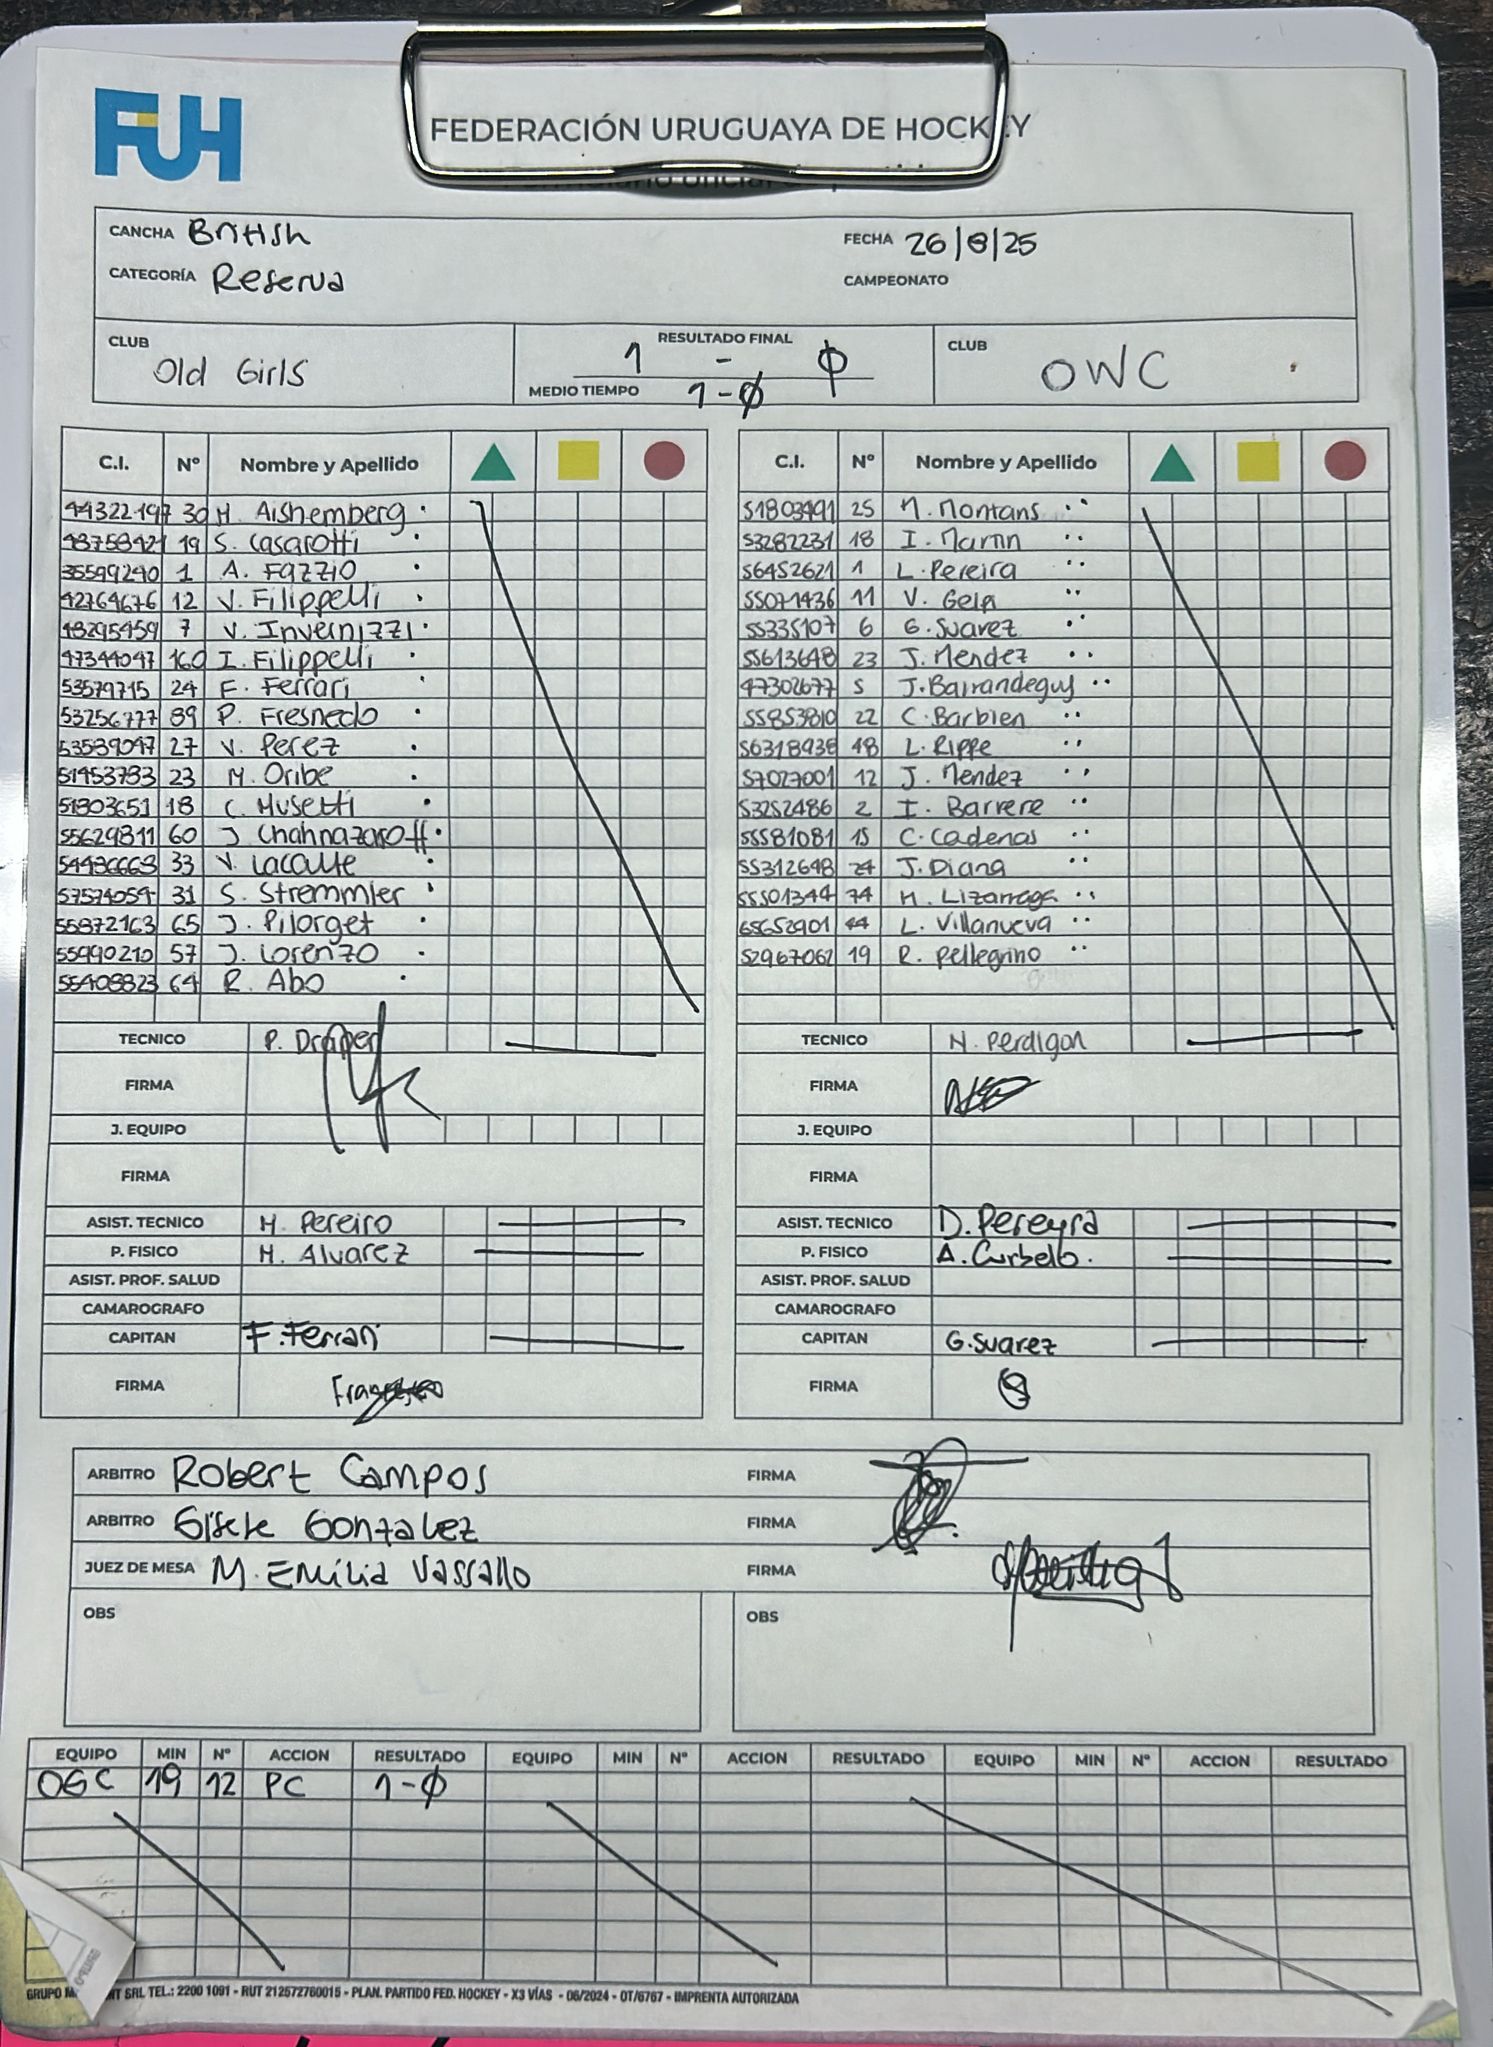 FUH
FEDERACIÓN URUGUAYA DE HOCKEY
CANCHA British
FECHA 26/8/25
CATEGORÍA Reserva
CAMPEONATO
CLUB Old Girls
RESULTADO FINAL 1 - 0
MEDIO TIEMPO 1-0
CLUB OWC
C.I. Nº Nombre y Apellido
44322197 30 M. Aishemberg
48758421 19 S. Casarotti
35599240 1 A. Fazzio
42764676 12 V. Filippelli
48295459 7 V. Invernizzi
47344047 160 I. Filippelli
53579715 24 F. Ferrari
53256777 89 P. Fresnedo
53539047 27 V. Perez
51453783 23 M. Oribe
51803651 18 C. Musetti
55629811 60 J Chahnazaroff
54436663 33 V. Lacalle
57574054 31 S. Stremmler
55872163 65 J. Pilorget
55990210 57 J. Lorenzo
55408823 64 R. Abo
TECNICO P. Draper
FIRMA
J. EQUIPO
FIRMA
ASIST. TECNICO M. Pereiro
P. FISICO M. Alvarez
ASIST. PROF. SALUD
CAMAROGRAFO
CAPITAN F. Ferrari
FIRMA
C.I. Nº Nombre y Apellido
51803491 25 M. Montans
53282231 18 I. Martin
56452621 1 L. Pereira
55071436 11 V. Gelp
55335107 6 G. Suarez
55613648 23 J. Mendez
47302677 5 J. Barrandeguy
55853810 22 C. Barbieri
56318938 48 L. Rippe
57027001 12 J. Mendez
53252486 2 I. Barrere
55581081 15 C. Cadenas
55312648 24 J. Diana
55501344 74 M. Lizarraga
65652901 44 L. Villanueva
52967062 19 R. Pellegrino
TECNICO N. Perdigon
FIRMA
J. EQUIPO
FIRMA
ASIST. TECNICO D. Pereyra
P. FISICO A. Curbelo.
ASIST. PROF. SALUD
CAMAROGRAFO
CAPITAN G. Suarez
FIRMA
ARBITRO Robert Campos FIRMA
ARBITRO Gisele Gonzalez FIRMA
JUEZ DE MESA M. Emilia Vassallo FIRMA
OBS
OBS
EQUIPO MIN Nº ACCION RESULTADO EQUIPO MIN Nº ACCION RESULTADO EQUIPO MIN Nº ACCION RESULTADO
OGC 19 12 PC 1-0
GRUPO SRL TEL.: 2200 1091 - RUT 212572760015 - PLAN. PARTIDO FED. HOCKEY - X3 VÍAS - 06/2024 - OT/6767 - IMPRENTA AUTORIZADA